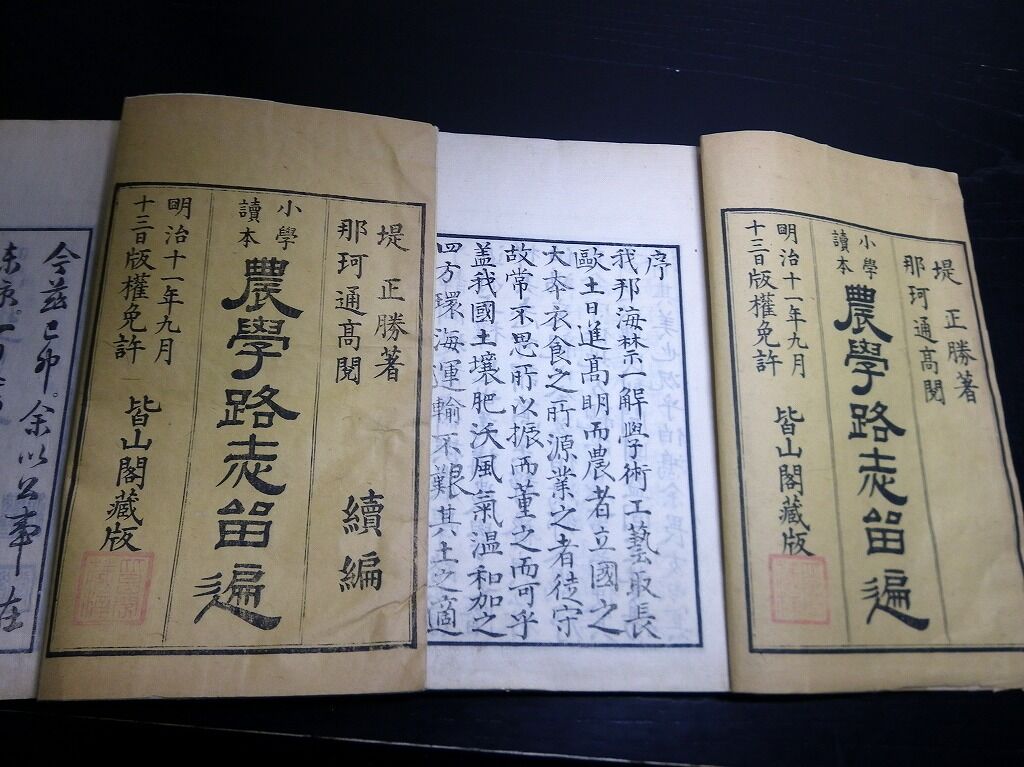 堤 正勝著
那珂通高閲
小學
讀本
農學路志留遍
明治十一年九月
十三日版權免許
皆山閣藏版
序
我邦海禁一解學術工藝取長
歐土日進高明而農者立國之
大本衣食之所源業之者徒守
故常不思所以振而董之而可乎
蓋我國土壤肥沃風氣温和加之
四方環海運輸不艱其土之適
堤 正勝著
那珂通高閲
續編
小學
讀本
農學路志留遍
明治十一年九月
十三日版權免許
皆山閣藏版
今茲己卯。余以公事在